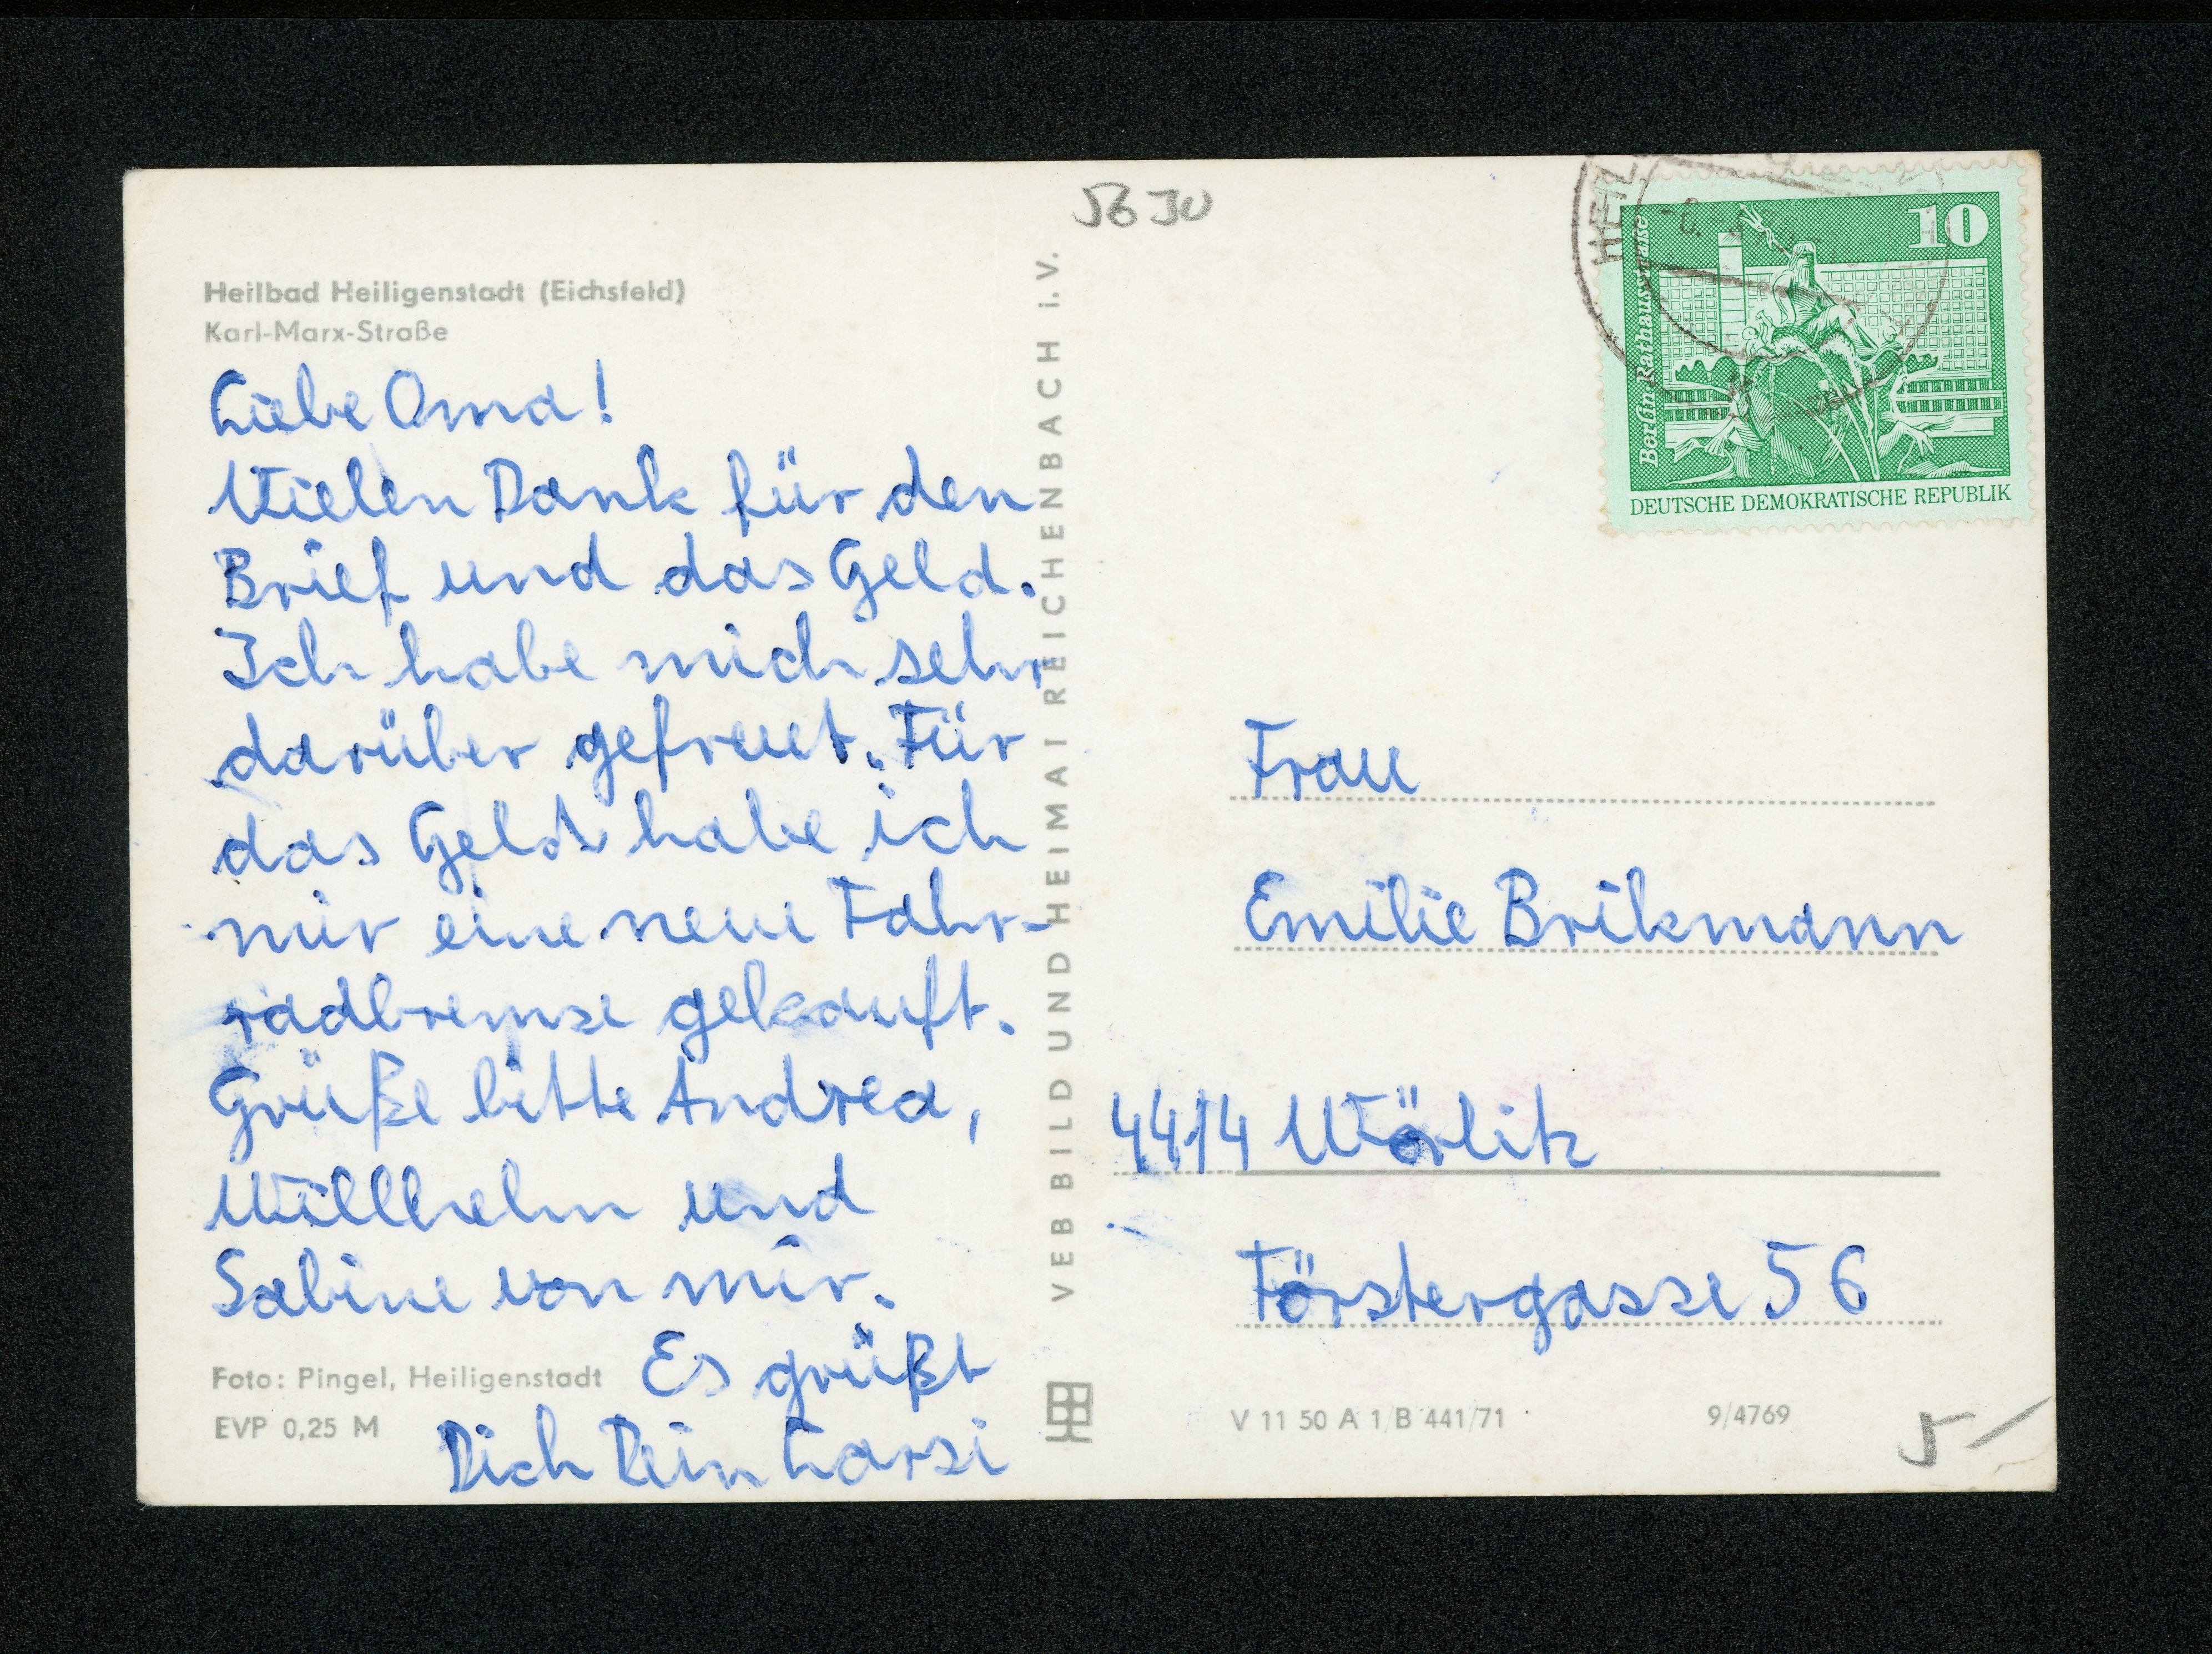 Heilbad Heiligenstadt (Eichsfeld)
Karl-Marx-Straße
Liebe Oma!
Vielen Dank für den
Brief und das Geld.
Ich habe mich sehr
darüber gefreut. Für
das Geld habe ich
mir eine neue Fahr-
radbremse gekauft.
Grüße bitte Andrea,
Willhelm und
Sabine von mir.
Es grüßt
Dich Dein Larsi
Foto: Pingel, Heiligenstadt
EVP 0,25 M
VEB BILD UND HEIMAT REICHENBACH i.V.
HEIL
10
Berlin, Rathausstraße
DEUTSCHE DEMOKRATISCHE REPUBLIK
Frau
Emilie Brikmann
4414 Wörlitz
Förstergasse 56
V 11 50 A 1/B 441/71
9/4769
5-